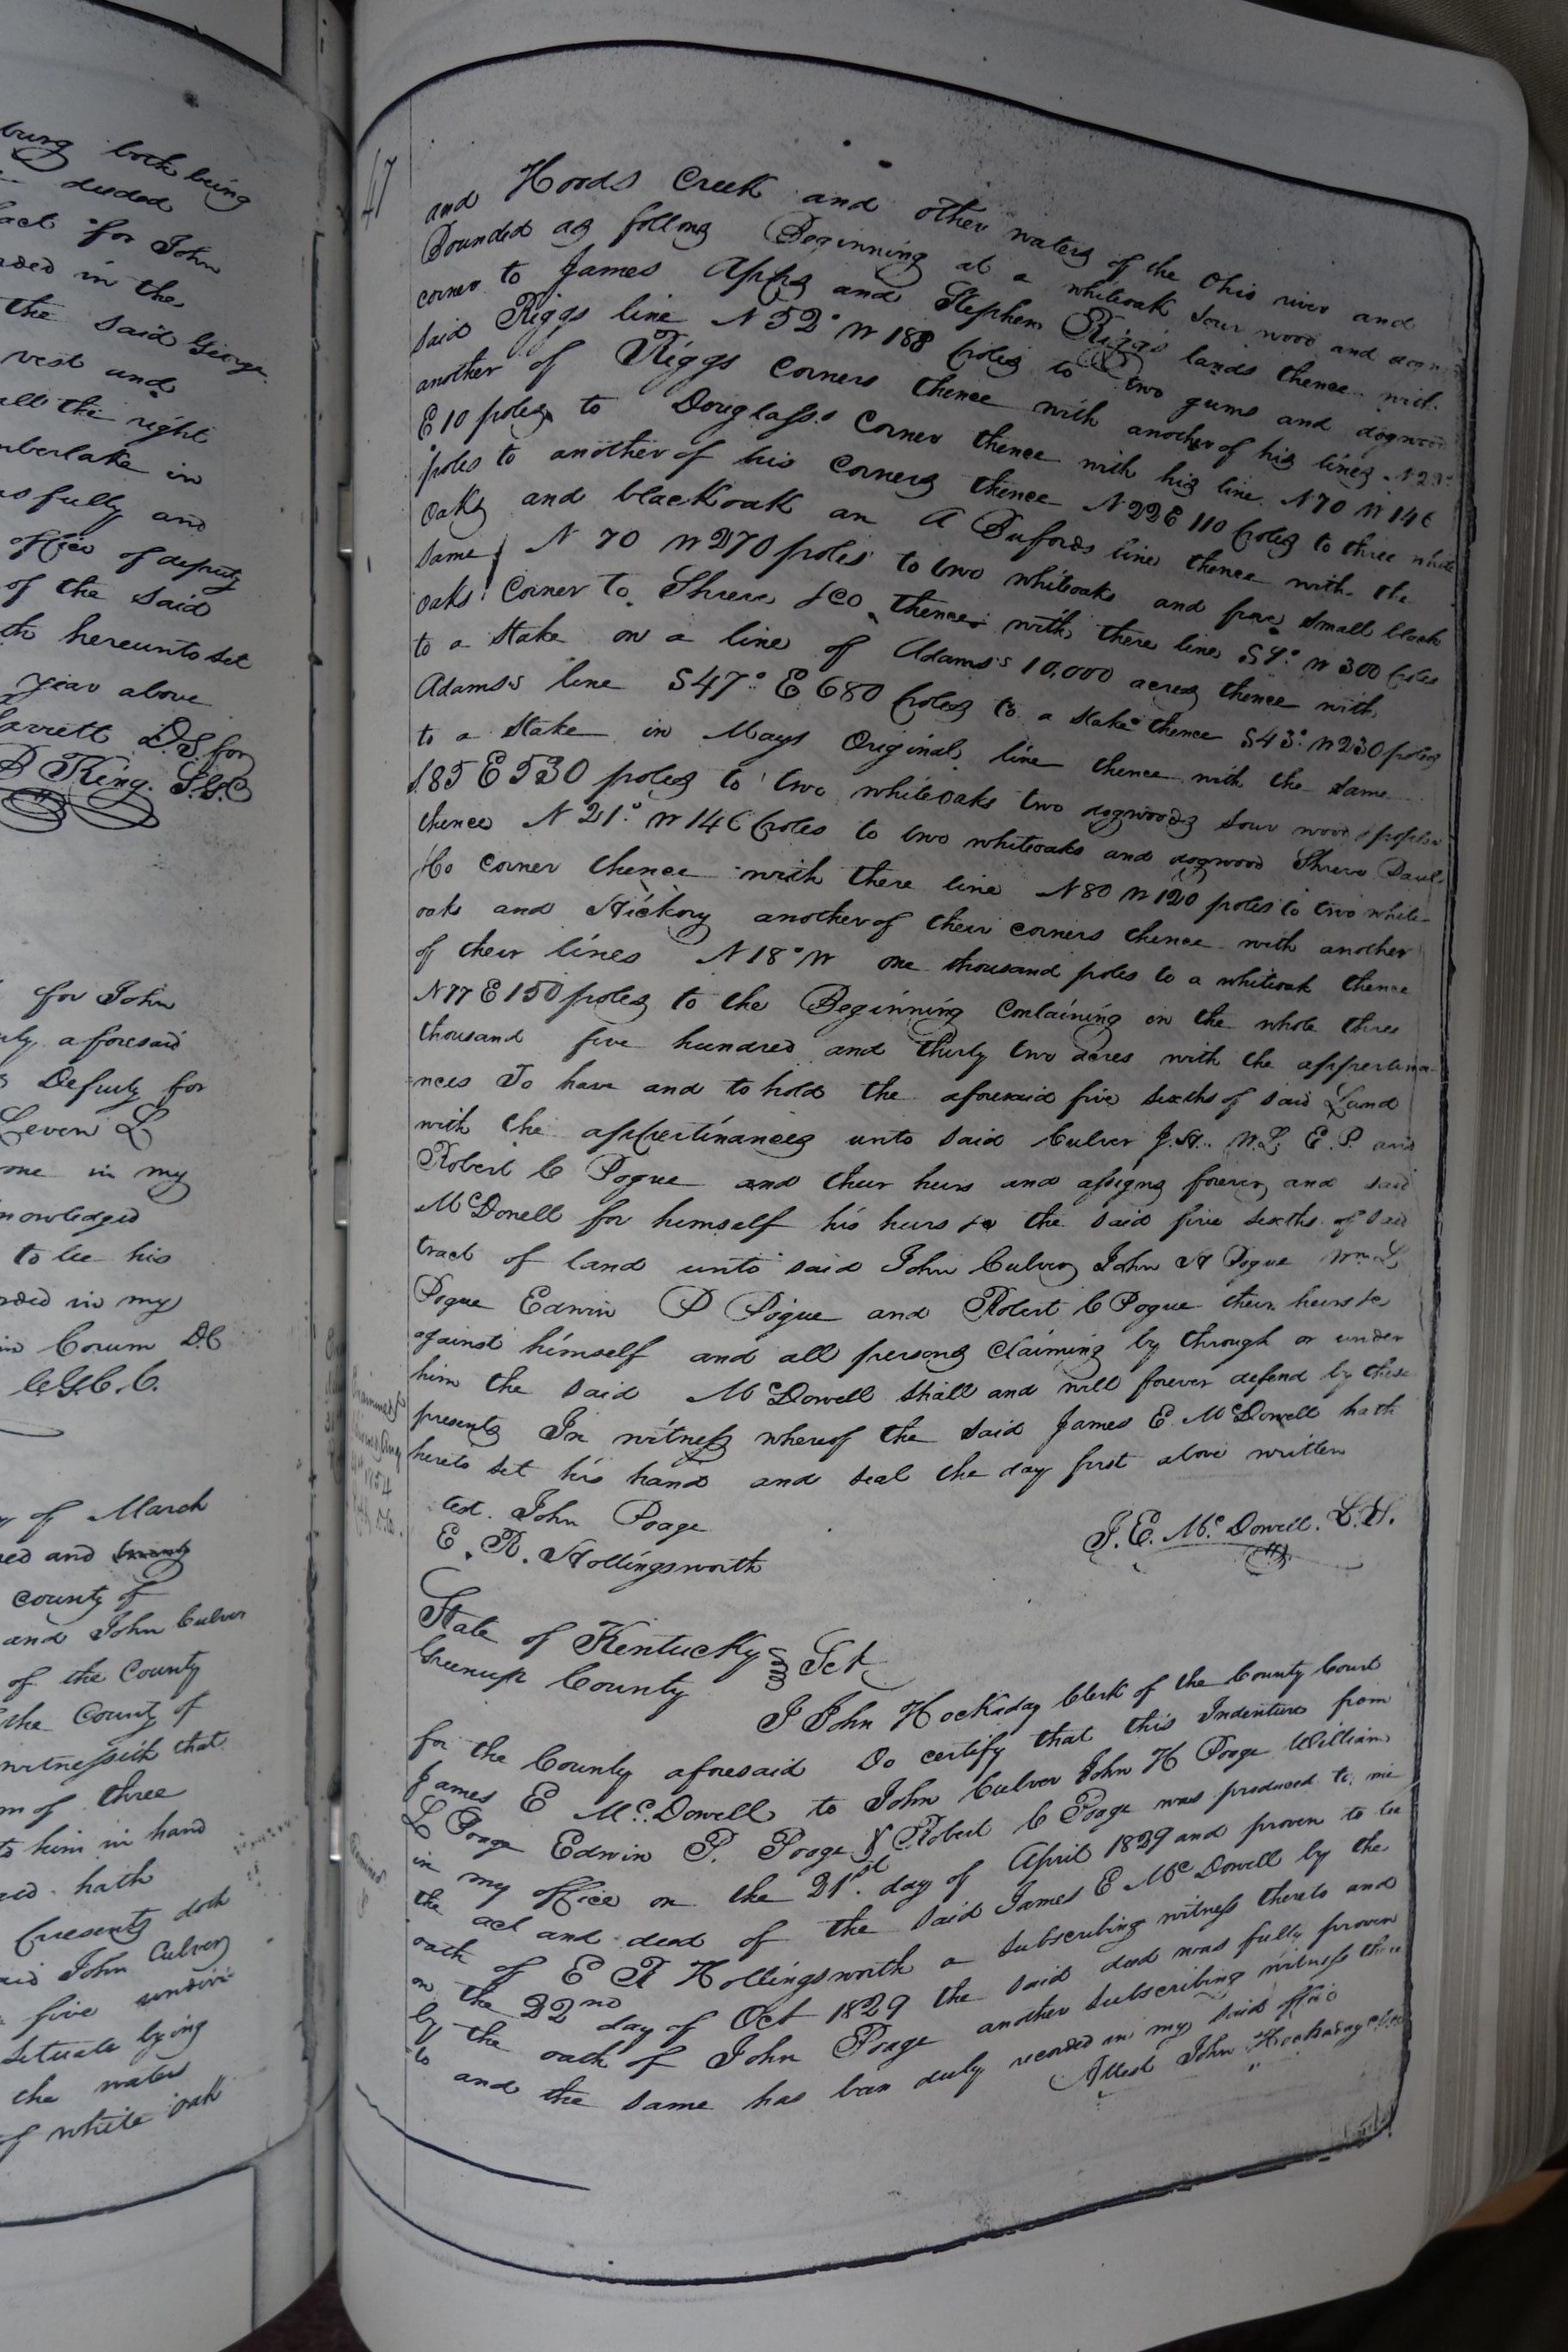 burg lock being
deeded
fact for John
rded in the
the said George
vest and
all the right
mberlake in
as fully and
office of deputy
of the said
th hereunto set
year above
Garrett D.S. for
D King. S.G.C
for John
nty aforesaid
s Deputy for
Leven L
me in my
nowledged
to be his
rded in my
in Corum D.C
C.G.C.C.
y of March
ed and
county of
and John Culver
of the County
the County of
witnesseth that
m of three
to him in hand
aid hath
presents doth
aid John Culver
five undivi
situate lying
the waters
of white oak
47
and Hoods Creek and other waters of the Ohio river and
Bounded as follows Beginning at a whiteoak sour wood and
corner to James Apps and Stephen Riggs lands thence with
said Riggs line N 52° W 188 poles to two gums and dogwood
another of Riggs corners thence with another of his lines N 23°
E 10 poles to Douglass corner thence with his line N 70 W 146
poles to another of his corners thence N 22 E 110 poles to three white
oaks and blackoak an A Bufords line thence with the
same N 70 W 270 poles to two whiteoaks and five small black
oaks corner to Shreve &co thence with there line S 9° W 300 poles
to a stake on a line of Adams's 10,000 acres thence with
Adams's line S 47° E 680 poles to a stake thence S 43° W 230 poles
to a stake in Mays Original line thence with the same
S. 85 E 530 poles to two whiteoaks two dogwoods sour wood & poplar
thence N 21° W 146 poles to two whiteoaks and dogwood Shreve
&Co corner thence with there line N 80 W 120 poles to two white
oaks and Hickory another of their corners thence with another
of their lines N 18° W one thousand poles to a whiteoak thence
N 77 E 150 poles to the Beginning Containing in the whole three
thousand five hundred and thirty two acres with the appertina-
=nces To have and to hold the aforesaid five sixths of said Land
with the appertinances unto said Culver J.H. W.L. E.P. and
Robert C Pogue and their heirs and assigns forever and said
McDowell for himself his heirs &c the said five sixths of said
tract of land unto said John Culver John H Pogue Wm L
Pogue Edwin P Pogue and Robert C Pogue their heirs &c
against himself and all persons claiming by through or under
him the said McDowell shall and will forever defend by these
presents In witness whereof the said James E. McDowell hath
hereto set his hand and seal the day first above written
test. John Poage
E. R. Hollingsworth
J. E. McDowell. L.S.
State of Kentucky
Greenup County Sct
I John Hockaday Clerk of the County Court
for the County aforesaid Do certify that this Indenture from
James E McDowell to John Culver John H Poage William
L Poage Edwin P. Poage & Robert C Poage was produced to me
in my office on the 21st day of April 1829 and proven to be
the act and deed of the said James E McDowell by the
oath of E R Hollingsworth a subscribing witness thereto and
on the 22nd day of Oct 1829 the said deed was fully proven
by the oath of John Poage another subscribing witness there
to and the same has been duly recorded in my said office
Attest John Hockaday